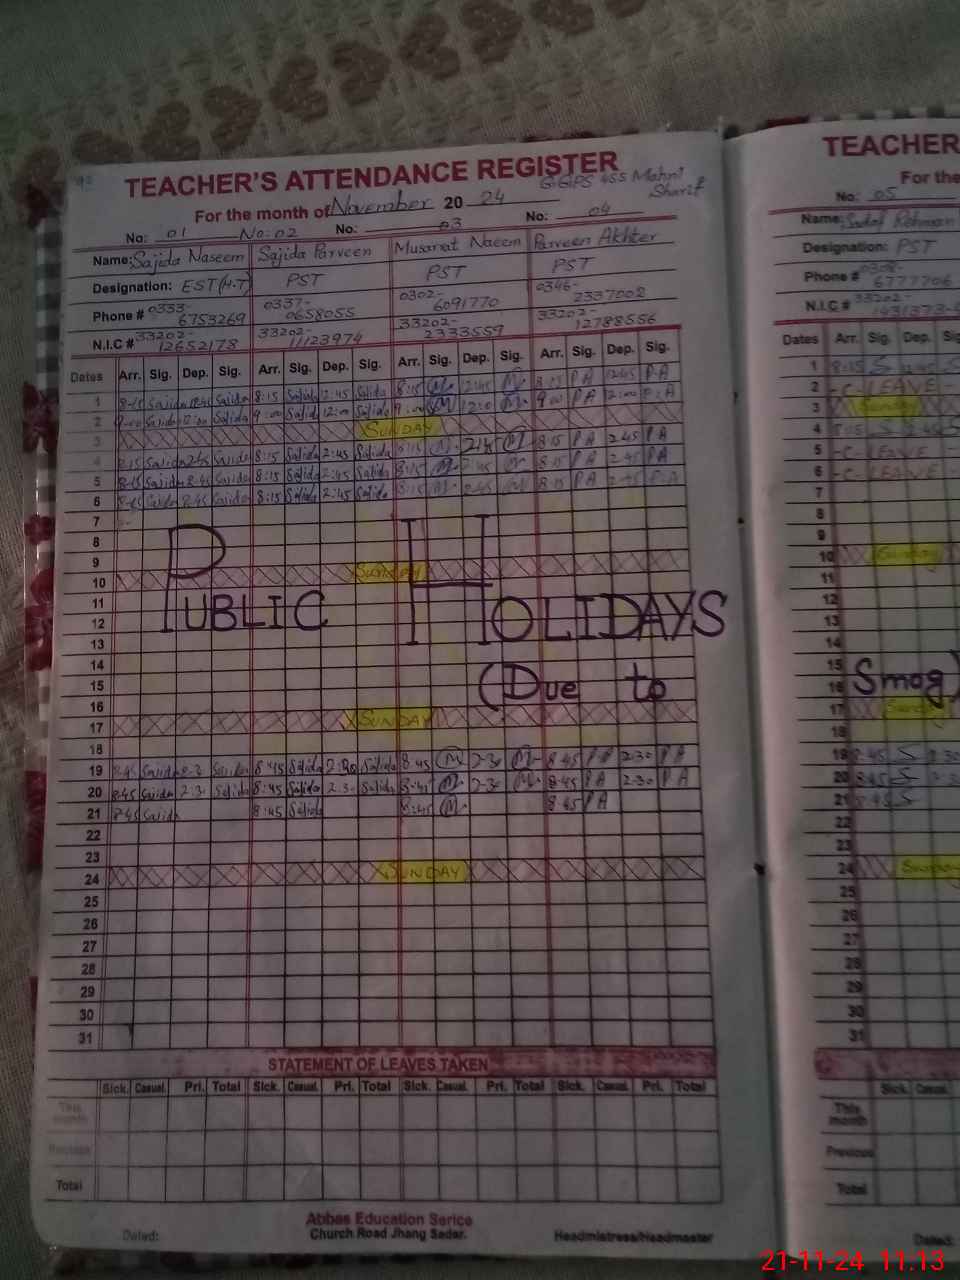 TEACHER'S ATTENDANCE REGISTER
GGPS 455 Mahni Sharif
For the month of November 20 24
No: 01 No: 02 No: 03 No: 04
Name: Sajida Naseem Sajida Parveen Musarat Naeem Parveen Akhter
Designation: EST(H.T) PST PST PST
Phone # 0333-6753269 0337-0658055 0302-6091770 0346-2337002
N.I.C # 33202-12652178 33202-11123974 33202-2333559 33202-12788556
Dates Arr. Sig. Dep. Sig. Arr. Sig. Dep. Sig. Arr. Sig. Dep. Sig. Arr. Sig. Dep. Sig.
1 8-15 Sajida Sajida 8:15 Sajida 2:45 Sajida 8:15 M 12:45 M 8:15 P A 12:45 P.A
2 9-00 Sajida 12:00 Sajida 9:00 Sajida 12:00 Sajida 9:00 M 12:0 M 9 00 P A 12:00 P.A
3 SUNDAY
4 8:15 Sajida 2:45 Sajida 8:15 Sajida 2:45 Sajida 8:15 M 2:45 M 8:15 P A 2.45 P.A
5 8-15 Sajida 2:45 Sajida 8:15 Sajida 2:45 Sajida 8:15 M 2:45 M 8:15 P A 2-45 P A
6 8-15 Sajida 2:45 Sajida 8:15 Sajida 2:45 Sajida 8:15 M 2:45 M 8:15 P A 2-45 P.A
7
8
9
10 SUNDAY
PUBLIC HOLIDAYS
11
12
13
14
15
(Due to Smog)
16
17 SUNDAY
18
19 8-45 Sajida 2-3 Sajida 8:45 Sajida 2:30 Sajida 8:45 M 2-30 M 8:45 P A 2-30 P A
20 8:45 Sajida 2:3 Sajida 8:45 Sajida 2:3 Sajida 8-45 M 2-30 M 8:45 P A 2-30 P A
21 8:45 Sajida 8:45 Sajida 8:45 M 8:45 P A
22
23
24 SUNDAY
25
26
27
28
29
30
31
STATEMENT OF LEAVES TAKEN
Sick. Casual. Pri. Total Sick. Casual. Pri. Total Sick. Casual. Pri. Total Sick. Casual. Pri. Total
This month
Previous
Total
Abbas Education Serice
Dated: Church Road Jhang Sadar. Headmistress/Headmaster
TEACHER
For the
No: 05
Name: Sadaf Rehman
Designation: PST
Phone # 6777706
N.I.C # 33202-
Dates Arr. Sig. Dep. Sig
1 8:15 S 12:45 S
2 -C- LEAVE -
3 Sunday
4 8:15 S 2:45 S
5 -C- LEAVE -
6 -C- LEAVE -
7
8
9
10 Sunday
11
12
13
14
15
16
17 Sunday
18
19 8:45 S 2:30
20 8:45 S
21 8:45 S
22
23
24 Sunday
25
26
27
28
29
30
31
Sick. Casual
This month
Previous
Total
Dated:
21-11-24 11:13